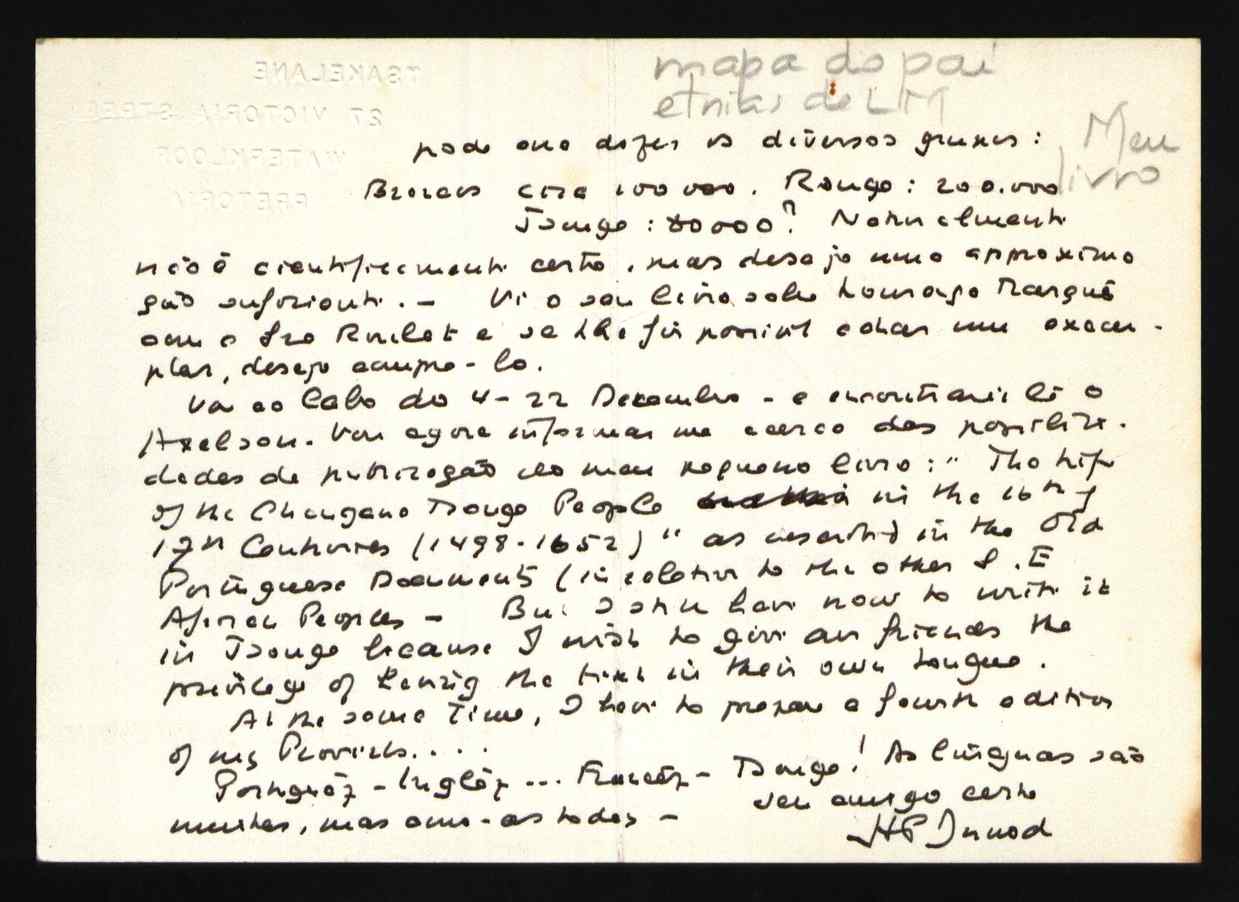 TSAKELANE
27 VICTORIA STREET
WATERKLOOF
PRETORIA
mapa do pai
etnias de LM
Meu
livro
pode ou dizer os diversos grupos:
cerca 100 000. Ronga: 200.000
Tsonga: 80000? Naturalmente
não é cientificamente certo, mas desejo uma approxima
ção suficiente. – Vi o seu livro sobre Lourenço Marquês
com o Sro Roulet e se lhe fôr possivel achar um exem-
plar, desejo compra-lo.
Vou ao Cabo do 4-22 Dezembro - e encontrarei lá o
Axelson. Vou agora informar me acerca das possibili-
dades de publicação do meu pequeno livro: " The life
of the Changana Tsonga People in the 16th &
17th Centuries (1498-1652)" as described in the Old
Portuguese Documents (in relation to the other S.E
African Peoples – But I shall have now to write it
in Tsonga because I wish to give our friends the
privilege of having the text in their own tongue.
At the same time, I have to prepare a fourth edition
of my Proverbs....
Portuguêz - Inglêz ... Francêz - Tsonga! As linguas são
muitas, mas amo-as todas –
seu amigo certo
HP Junod